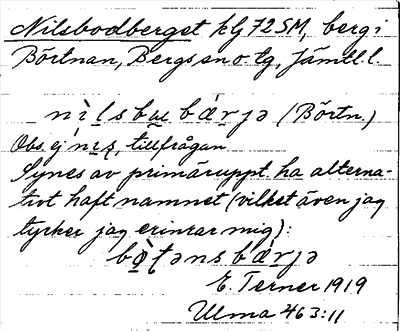 Nilsbodberget klg 72 SM, berg i
Börtnan, Bergs sn o. tg, Jämtl. l.
nìlsbɯbárjə (Börtn.)
Obs. ej nıʂ, tillfrågan.
Synes av primäruppt. ha alterna-
tivt haft namnet (vilket även jag
tycker jag erinrar mig):
bø̀ʈənsbárjə
E. Terner 1919
Ulma 463:11